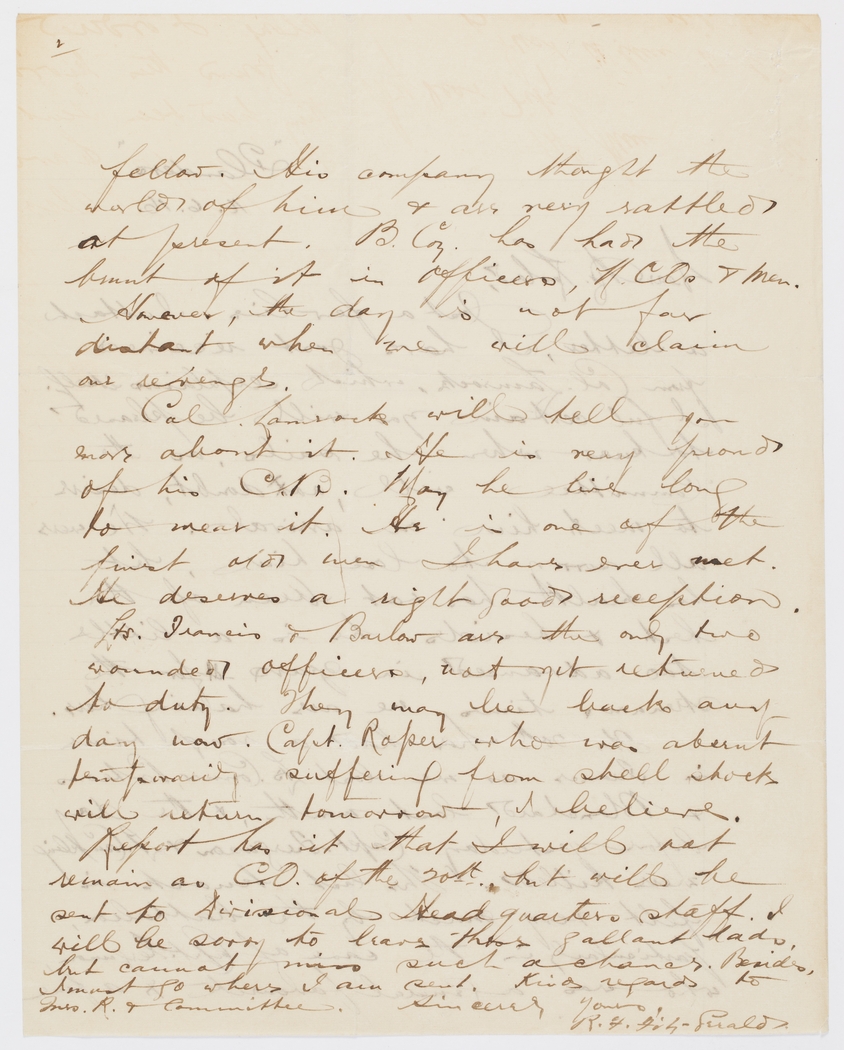 2
fellow. His company thought the
world of him & are very rattled
at present. B. Coy. has had the
brunt of it in officers, N.C.Os & men.
However, the day is not far
distant when we will claim
our revenge.
Col. Lamrock will tell you
more about it. He is very proud
of his C.B. May he live long
to wear it. He is one of the
finest old men I have ever met.
He deserves a right good reception.
Lts. Francis & Barlow are the only two
wounded officers, not yet returned
to duty. They may be back any
day now. Capt. Roper who was absent
temporarily suffering from shell shock
will return tomorrow, I believe.
Report has it that I will not
remain as C.O. of the 20th., but will be
sent to Divisional Head quarters staff. I
will be sorry to leave these gallant lads,
but cannot miss such a chance. Besides,
I must go where I am sent. Kind regards to
Mrs. R. & Committee. Sincerely yours,
R. F. Fitz-Gerald.